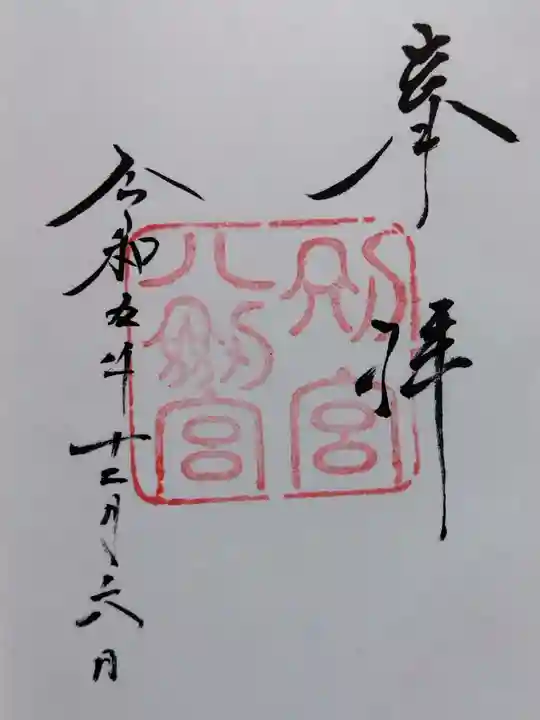 奉拝
八剱宮
令和五年十二月六日